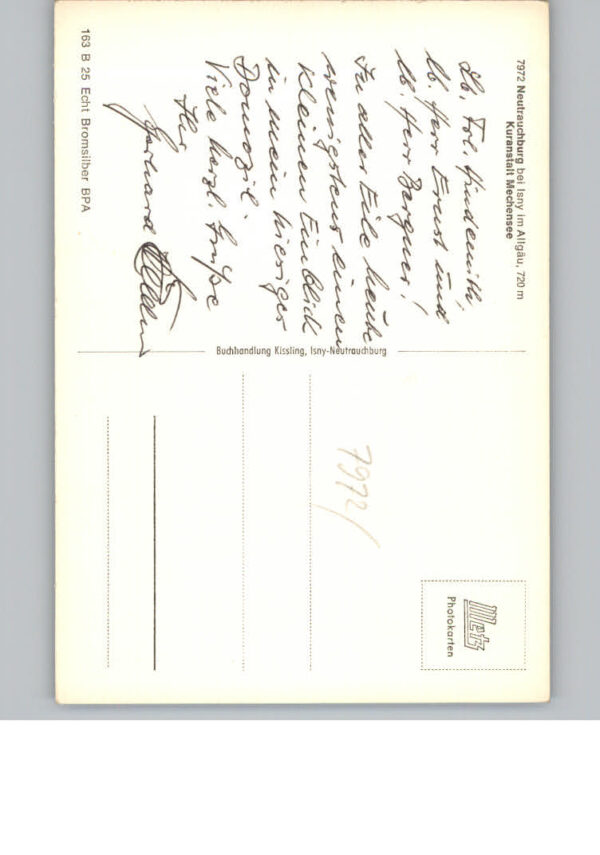 7972 Neutrauchburg bei Isny im Allgäu, 720 m
Kuranstalt Mechensee
Lb. Frl. Hindemith,
lb. Herr Ernst und
lb. Herr Bergner!
In aller Eile heute
wenigstens einen
kleinen Einblick
in mein hiesiges
Domozil.
Viele herzl. Grüße
Ihr
Gerhard
163 B 25 Echt Bromsilber BPA
Buchhandlung Kissling, Isny-Neutrauchburg
7972/
Metz
Photokarten